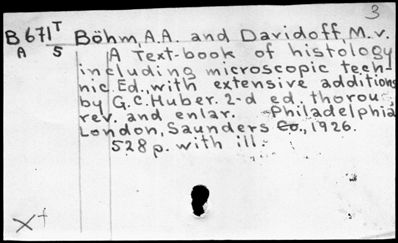 3
B671T Böhm, A.A. and Davidoff, M.v.
A 5 A Text-book of histology
including microscopic tech-
nic. Ed., with extensive additions
by G.C. Huber. 2-d ed. thorou.
rev. and enlar. Philadelphia
London, Saunders Co., 1926.
528 p. with ill.
x f